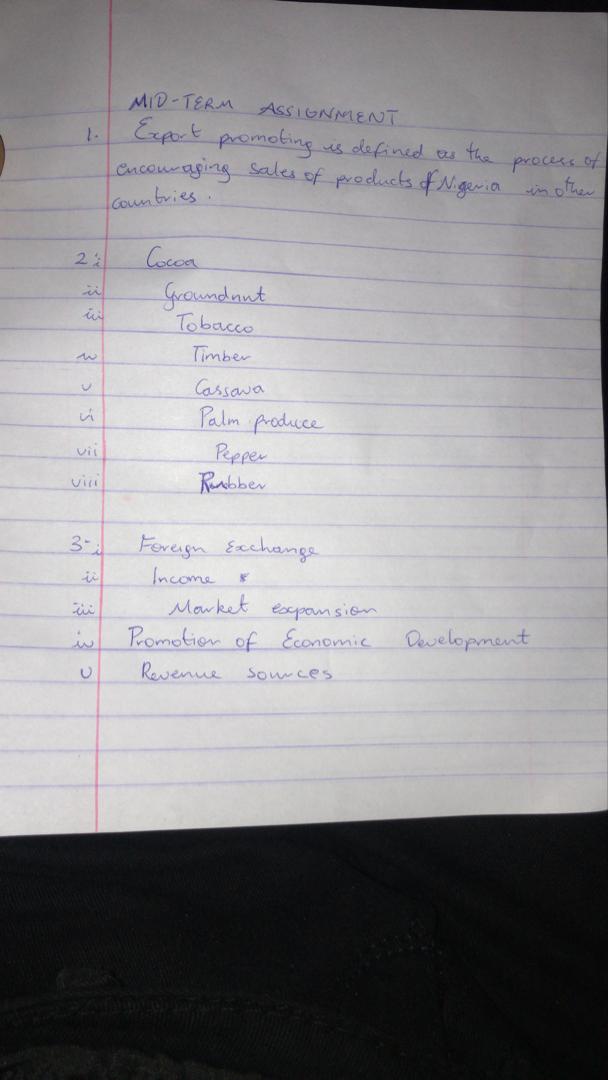 MID-TERM ASSIGNMENT
1. Export promoting is defined as the process of
encouraging sales of products of Nigeria in other
countries.
2 i Cocoa
ii Groundnut
iii Tobacco
iv Timber
v Cassava
vi Palm produce
vii Pepper
viii Rubber
3- i Foreign Exchange
ii Income
iii Market expansion
iv Promotion of Economic Development
v Revenue sources